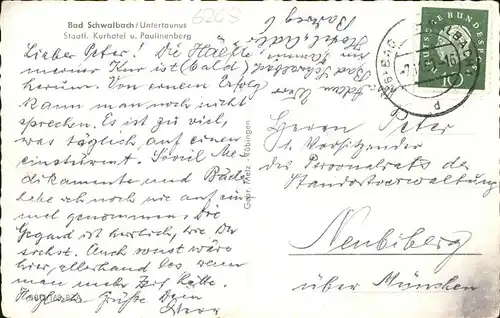 Bad Schwalbach/Untertaunus
Staatl. Kurhotel u. Paulinenberg
Lieber Peter! Die Hälfte
meiner Kur ist (bald)
herum. Von einem Erfolg
kann man noch nicht
sprechen. Es ist zu viel,
was täglich auf einen
einstürmt. Soviel Me-
dikamente und Bäder
habe ich noch nie auf ein-
mal genommen. Die
Gegend ist herrlich, wie Du
siehst. Auch sonst wäre
hier allerhand los, wenn
man mehr Zeit hätte.
Herzliche Grüße Dein
Gebr. Metz, Tübingen
DEUTSCHE BUNDESPOST
10
Herrn Peter
Vorsitzender
des Personalrats der
Standortverwaltung
Neubiberg
über München